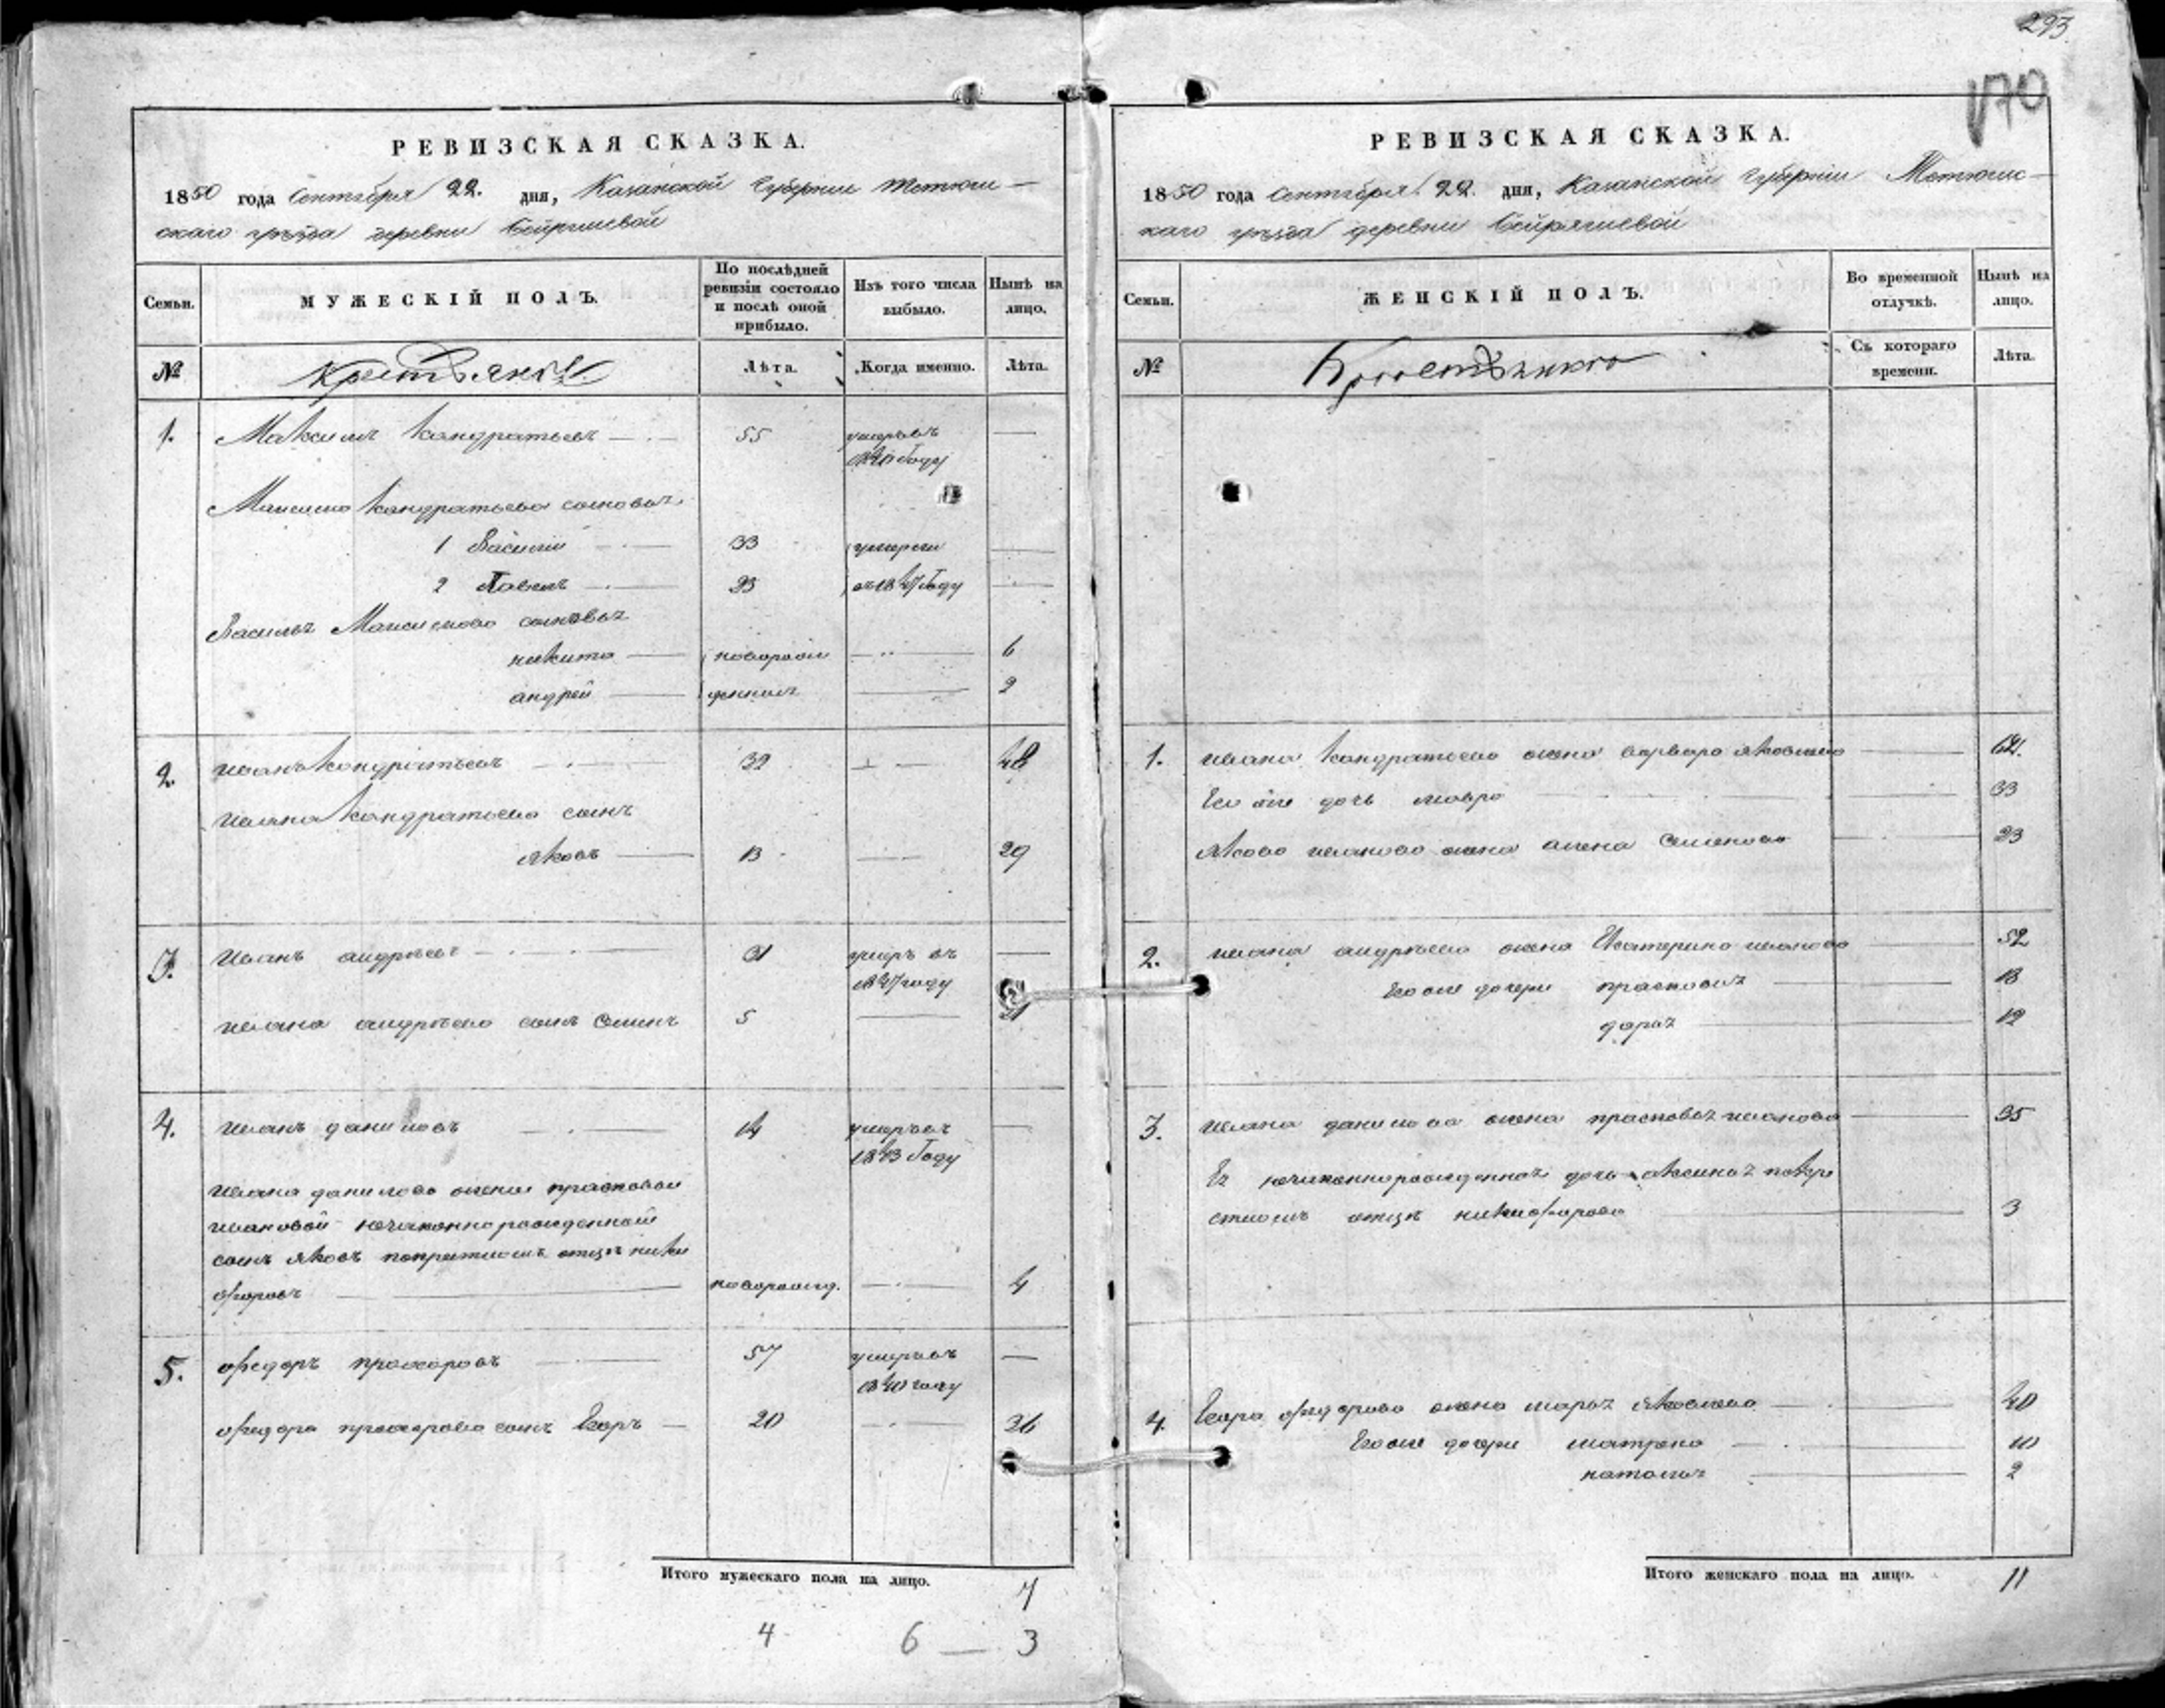 293
170
РЕВИЗСКАЯ СКАЗКА.
1850 года Сентября 22. дня, Казанской Губернии Тетюш-
скаго уѣзда деревни
Семьи.
МУЖЕСКІЙ ПОЛЪ.
По послѣдней ревизіи состояло и послѣ оной прибыло.
Изъ того числа выбыло.
Нынѣ на лицо.
№
Крестьяне
Лѣта.
Когда именно.
Лѣта.
1. Максимъ Кандратьевъ 55 умеръ въ
году
Максима Кандратьева сыновья
1 Василий 33 умерли
2 Павелъ 23 въ 1847 году
Василья Максимова сыновья
никита новорож 6
андрей денныя 2
2. иванъ Кондратьевъ 32 48
ивана Кандратьева сынъ
яковъ 13 29
3. иванъ андрѣевъ 31 умеръ въ
1847 году
ивана андрѣева сынъ Семенъ 5 21
4. иванъ даниловъ 14 умеръ въ
1843 году
ивана данилова жены прасковьи
ивановой незаконнорожденной
сынъ яковъ покрестномъ отцѣ ники
форовъ новорожд. 4
5. федоръ прохоровъ 57 умеръ въ
1840 году
федора прохорова сынъ Егоръ 20 36
Итого мужескаго пола на лицо. 7
4 6 — 3
РЕВИЗСКАЯ СКАЗКА.
1850 года Сентября 22. дня, Казанской Губерніи Тетюшс-
каго уѣзда деревни
Семьи.
ЖЕНСКІЙ ПОЛЪ.
Во временной отлучкѣ.
Нынѣ на лицо.
№
Съ котораго времени.
Лѣта.
1. ивана Кандратьева жена варвара яковлева
Его же дочь мавра 33
якова иванова жена Семенова 23
2. ивана андрѣева жена Екатерина иванова 52
Его же дочери прасковья 18
дарья 12
3. ивана данилова жена прасковья иванова 35
Ея незаконнорожденная дочь аксинья покре
стномъ отцѣ никифорова 3
4. Егора федорова жена марья яковлева 40
Его же дочери матрена 10
наталья 2
Итого женскаго пола на лицо. 11